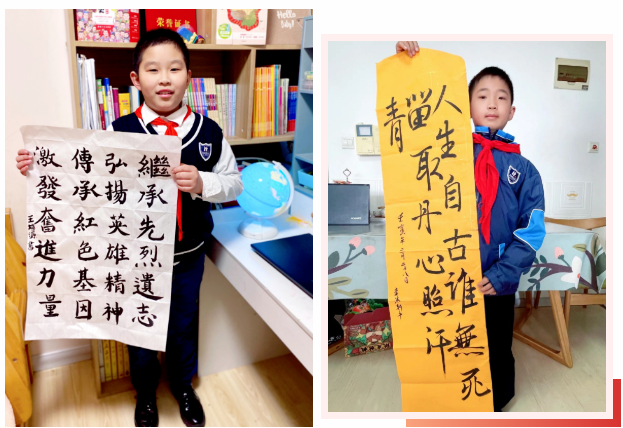 荣誉证书
Hello
繼承先烈遺志
弘揚英雄精神
傳承紅色基因
激發奮進力量
人生自古誰無死
留取丹心照汗
青